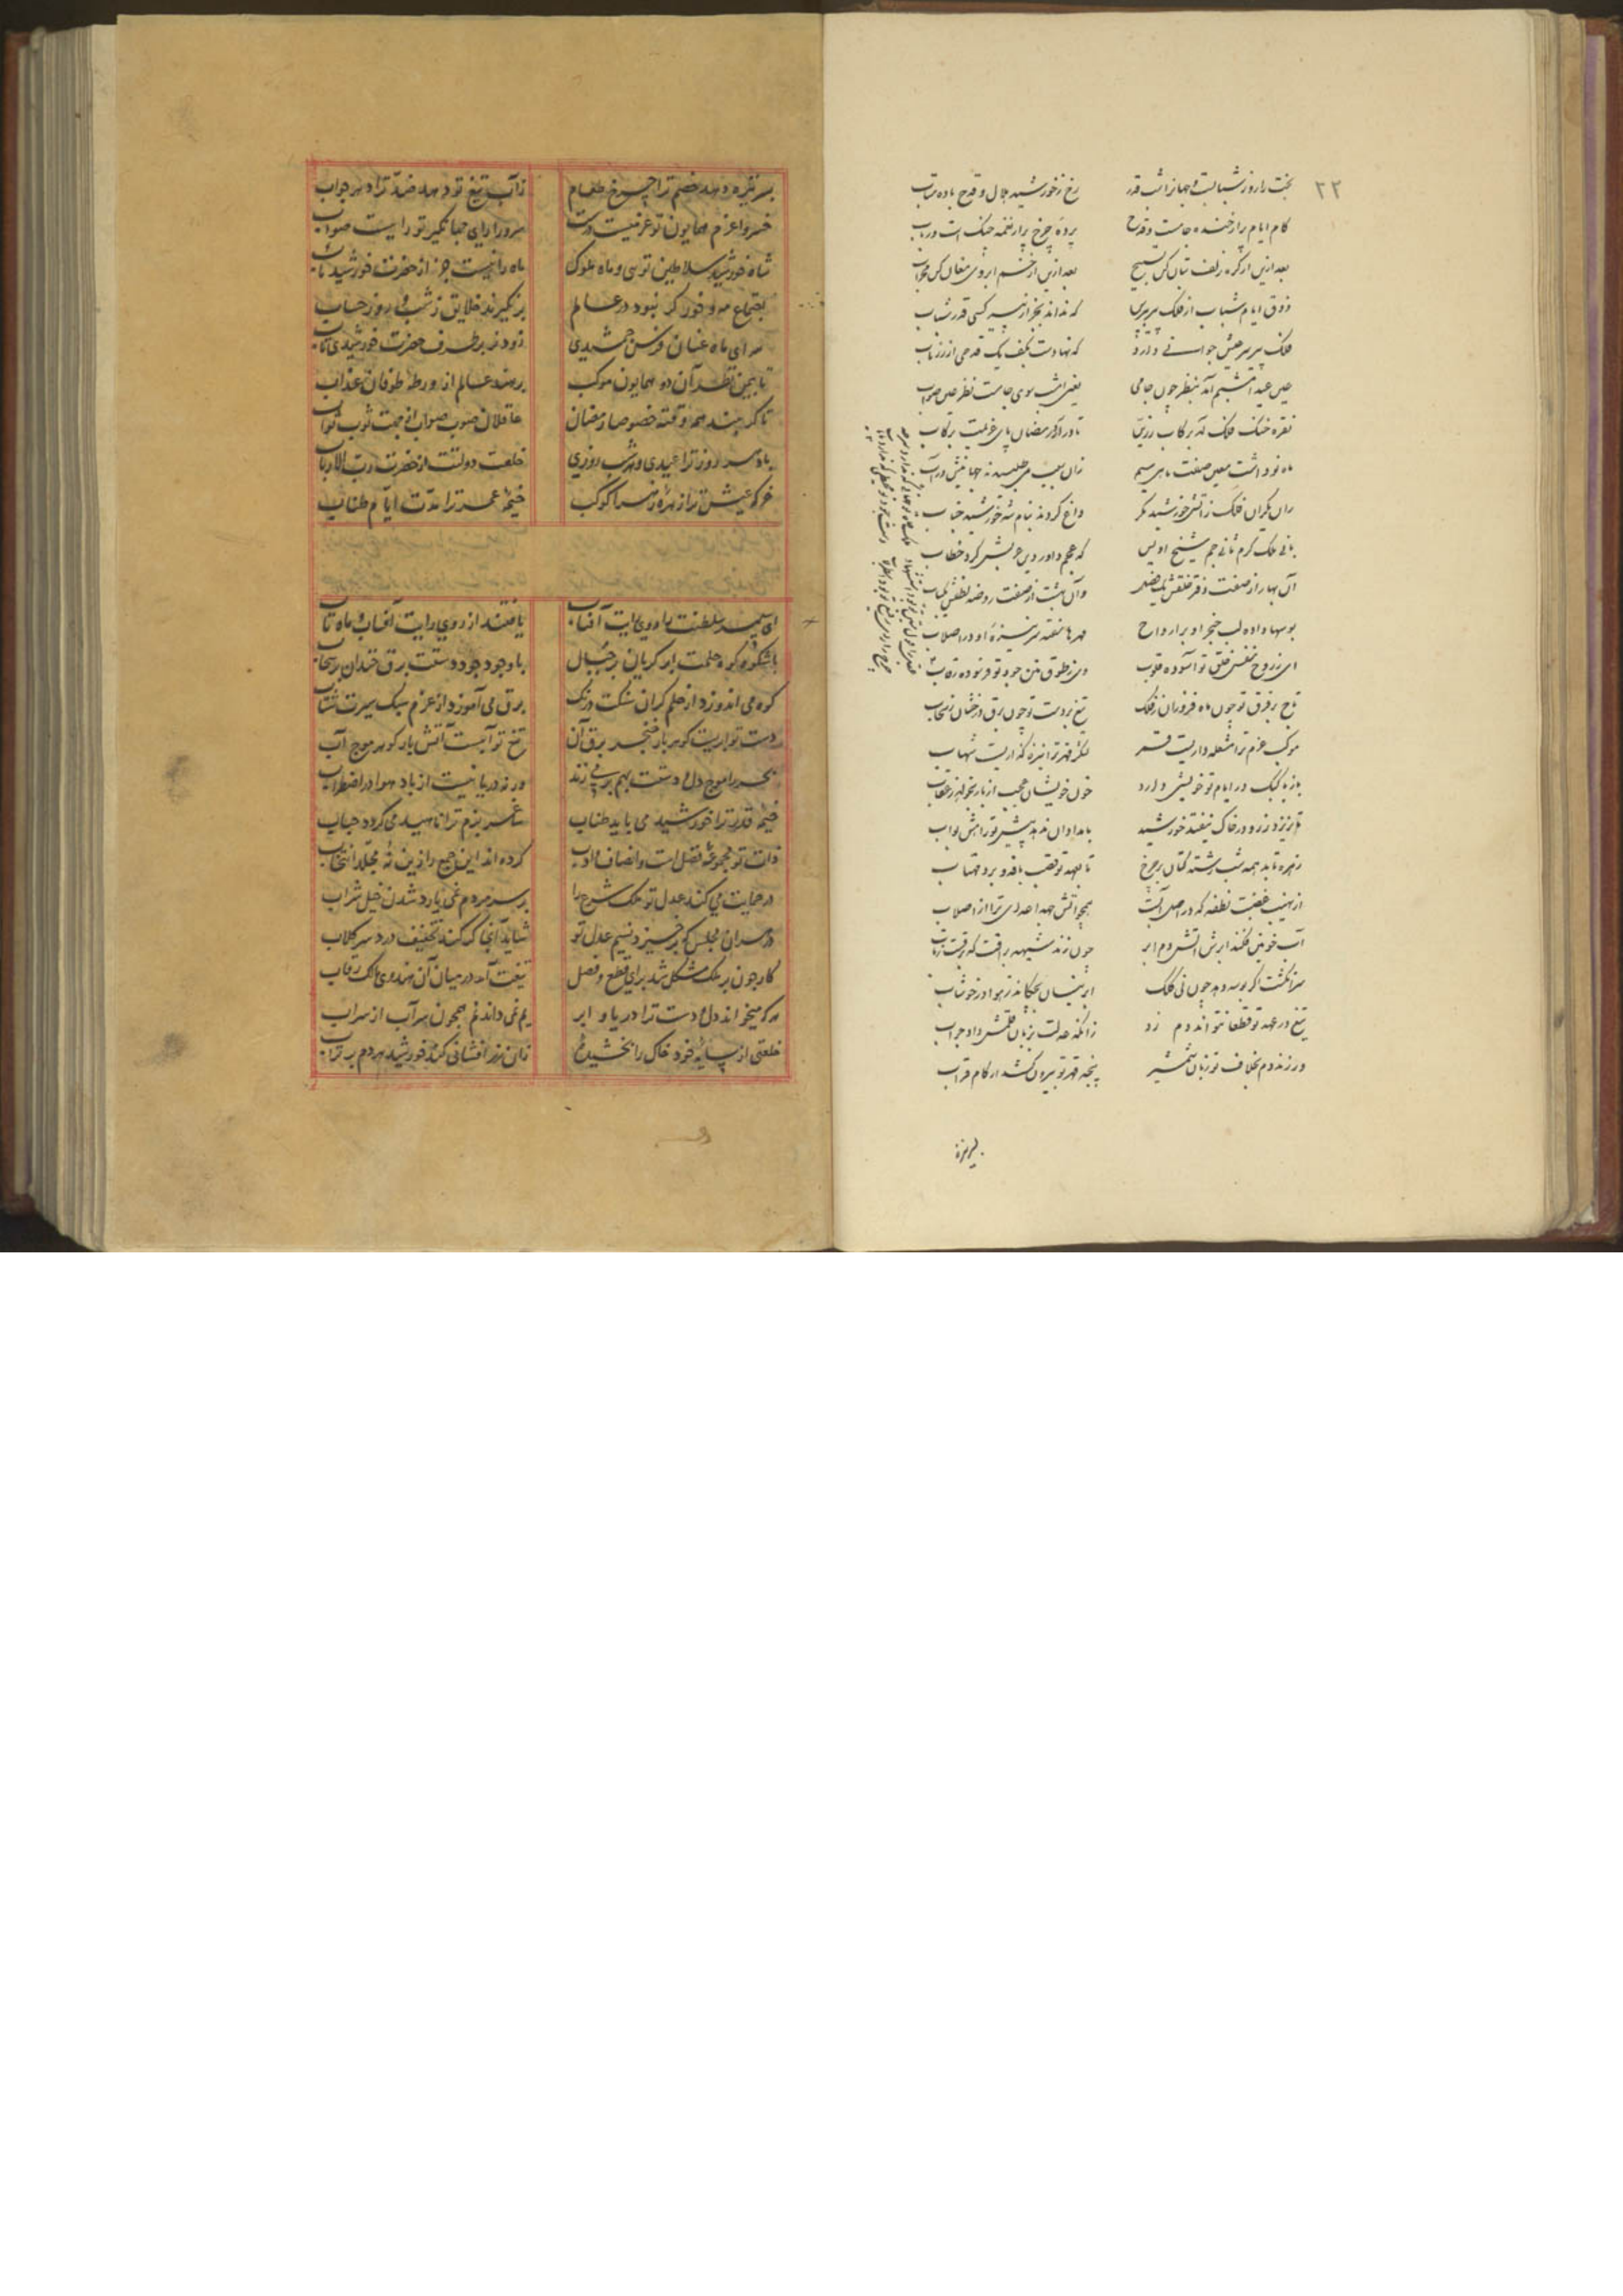 ۲۲
بخت را روز شبابست و جهان را شب قدر
رخ ز خورشید جلال و قدح باده متاب
کام ایام پر از خنده جامست و قدح
پرده چرخ پر از نغمه چنگ است و رباب
بعد ازین از گره زلف بتان کن تسبیح
بعد ازین از خم ابروی مغان کن محراب
ذوق ایام شباب از فلک پیر بپرس
که نداند بجز از پیر کسی قدر شباب
فلک پیر سر عیش جوانی دارد
که نهادست بکف یک قدحی از زر ناب
عین عید امشبم آمد بنظر چون جامی
یعنی امشب سوی جامست نظر عین صواب
نقره خنگ فلک آمد برکاب زرین
تا در آرد رمضان پای عزیمت برکاب
ماه نو داشت معین صفت ماهی سیم
زان سبب می طلبیدند جهانیش در آب
ران یکران فلک ز آتش خورشید مگر
داغ کردند بنام شه خورشید جناب
بانی ملک کرم ثانی جم شیخ اویس
که عجم داور دین پرورش کرد خطاب
آن بهار از صفت دفتر خلقش یک فصل
وآن بهشت از صفت روضه لطفش یک باب
بوسها داده لب خنجر او بر ارواح
مهرها سفته سر نیزه او در اصلاب
ای ز روح نفس خلق تو آسوده قلوب
وی ز طوق منن جود تو فرسوده رقاب
تاج بر فرق تو چون ماه فروزان ز فلک
تیغ بر دست تو چون برق درخشان ز سحاب
موکب عزم ترا مشعله داریست قمر
لشکر قهر ترا نیزه گذاریست شهاب
باز با کبک در ایام تو خویشی دارد
خون خویشان عجب ار باز نخواهد ز عقاب
تا نریزد زر و در خاک نیفتد خورشید
بامدادان ندهد پیش تو راهش بواب
زهره تابد همه شب رشته کتان بر چرخ
تا بعهد تو قصب بافد و برد مهتاب
از نهیب غضبت نطفه که در اصل آبست
همچو آتش جهد اعدای ترا از اصلاب
آب خونین فکند ابرش آتش دم ابر
چون زند شیهه براقت که برقست رکاب
سر انگشت اگر بوسه دهد چون نی کلک
ابر نیسان بچکاند ز هوا در خوشاب
تیغ در عهد تو قطعا نتواند دم زد
زانکه عدلت بزبان قلمش داد جواب
ور زند دم بخلاف تو زبان شمشیر
پنجه قهر تو بیرون کشد از کام قراب
سر نیزه دهد خصم ترا چرخ طعام
ز آب تیغ تو دهد ضد ترا دهر جواب
خسروا عزم همایون تو عزمیست درست
سرورا رای جهانگیر تو راییست صواب
شاه خورشید سلاطین تویی و ماه ملوک
ماه را نیست جز از حضرت خورشید مآب
بقماع مه و خور گر نبود در عالم
برنگیرند خلایق ز شب و روز حساب
سرای ماه عنان فرس جمشیدی
زود نه بر طرف حضرت خورشیدی تاب
تا بیمن نظر آن دو همایون موکب
برهد عالم از ورطه طوفان عذاب
تا گرایند همه وقته خصوصا رمضان
عاقلان صوب صواب از جهت ثوب ثواب
باد هر روز ترا عیدی و هر شب روزی
خلعت دولتت از حضرت رب الارباب
خرگه عیش ترا زهره زهرا کوکب
خیمه عمر ترا مدت ایام طناب
ای سپهر سلطنت را روی رایت آفتاب
یافتند از روی رایت آفتاب و ماه تاب
با شکوه کوه حلمت ابر گریان بر جبال
با وجود جود دستت برق خندان بر سحاب
کوه می اندوزد از حلم گران سنگت درنگ
برق می آموزد از عزم سبک سیرت شتاب
دست تو ابریست گوهر بار خنجر برق آن
تیغ تو آبیست آتش بار گوهر موج آب
بحر را موج دل و دستت بهم بر می زند
ور نه دریا نیست از باد هوا در اضطراب
خیمه قدر ترا خورشید می باید طناب
ساغر بزم ترا ناهید می گردد حباب
ذات تو مجموعه فضل است و انصاف و ادب
کرده اند این جمع را زین نه مجلد انتخاب
در حمایت می کند عدل تو ملک شرع را
بر سر مردم نمی یارد شدن خیل شراب
در سران مجلس کو بر خیزد نسیم عدل تو
شاید آنجا گر کند تخفیف درد سر گلاب
کار چون بر ملک مشکل شد برای قطع و فصل
تیغت آمد در میان آن هندوی مالک رقاب
هر که میخواند دل و دست ترا دریا و ابر
یم نمی داند ز یم همچون سر آب از سراب
خلعتی از سایه خود خاک را بخشیده
زان زر افشانی کند خورشید هر دم بر تراب